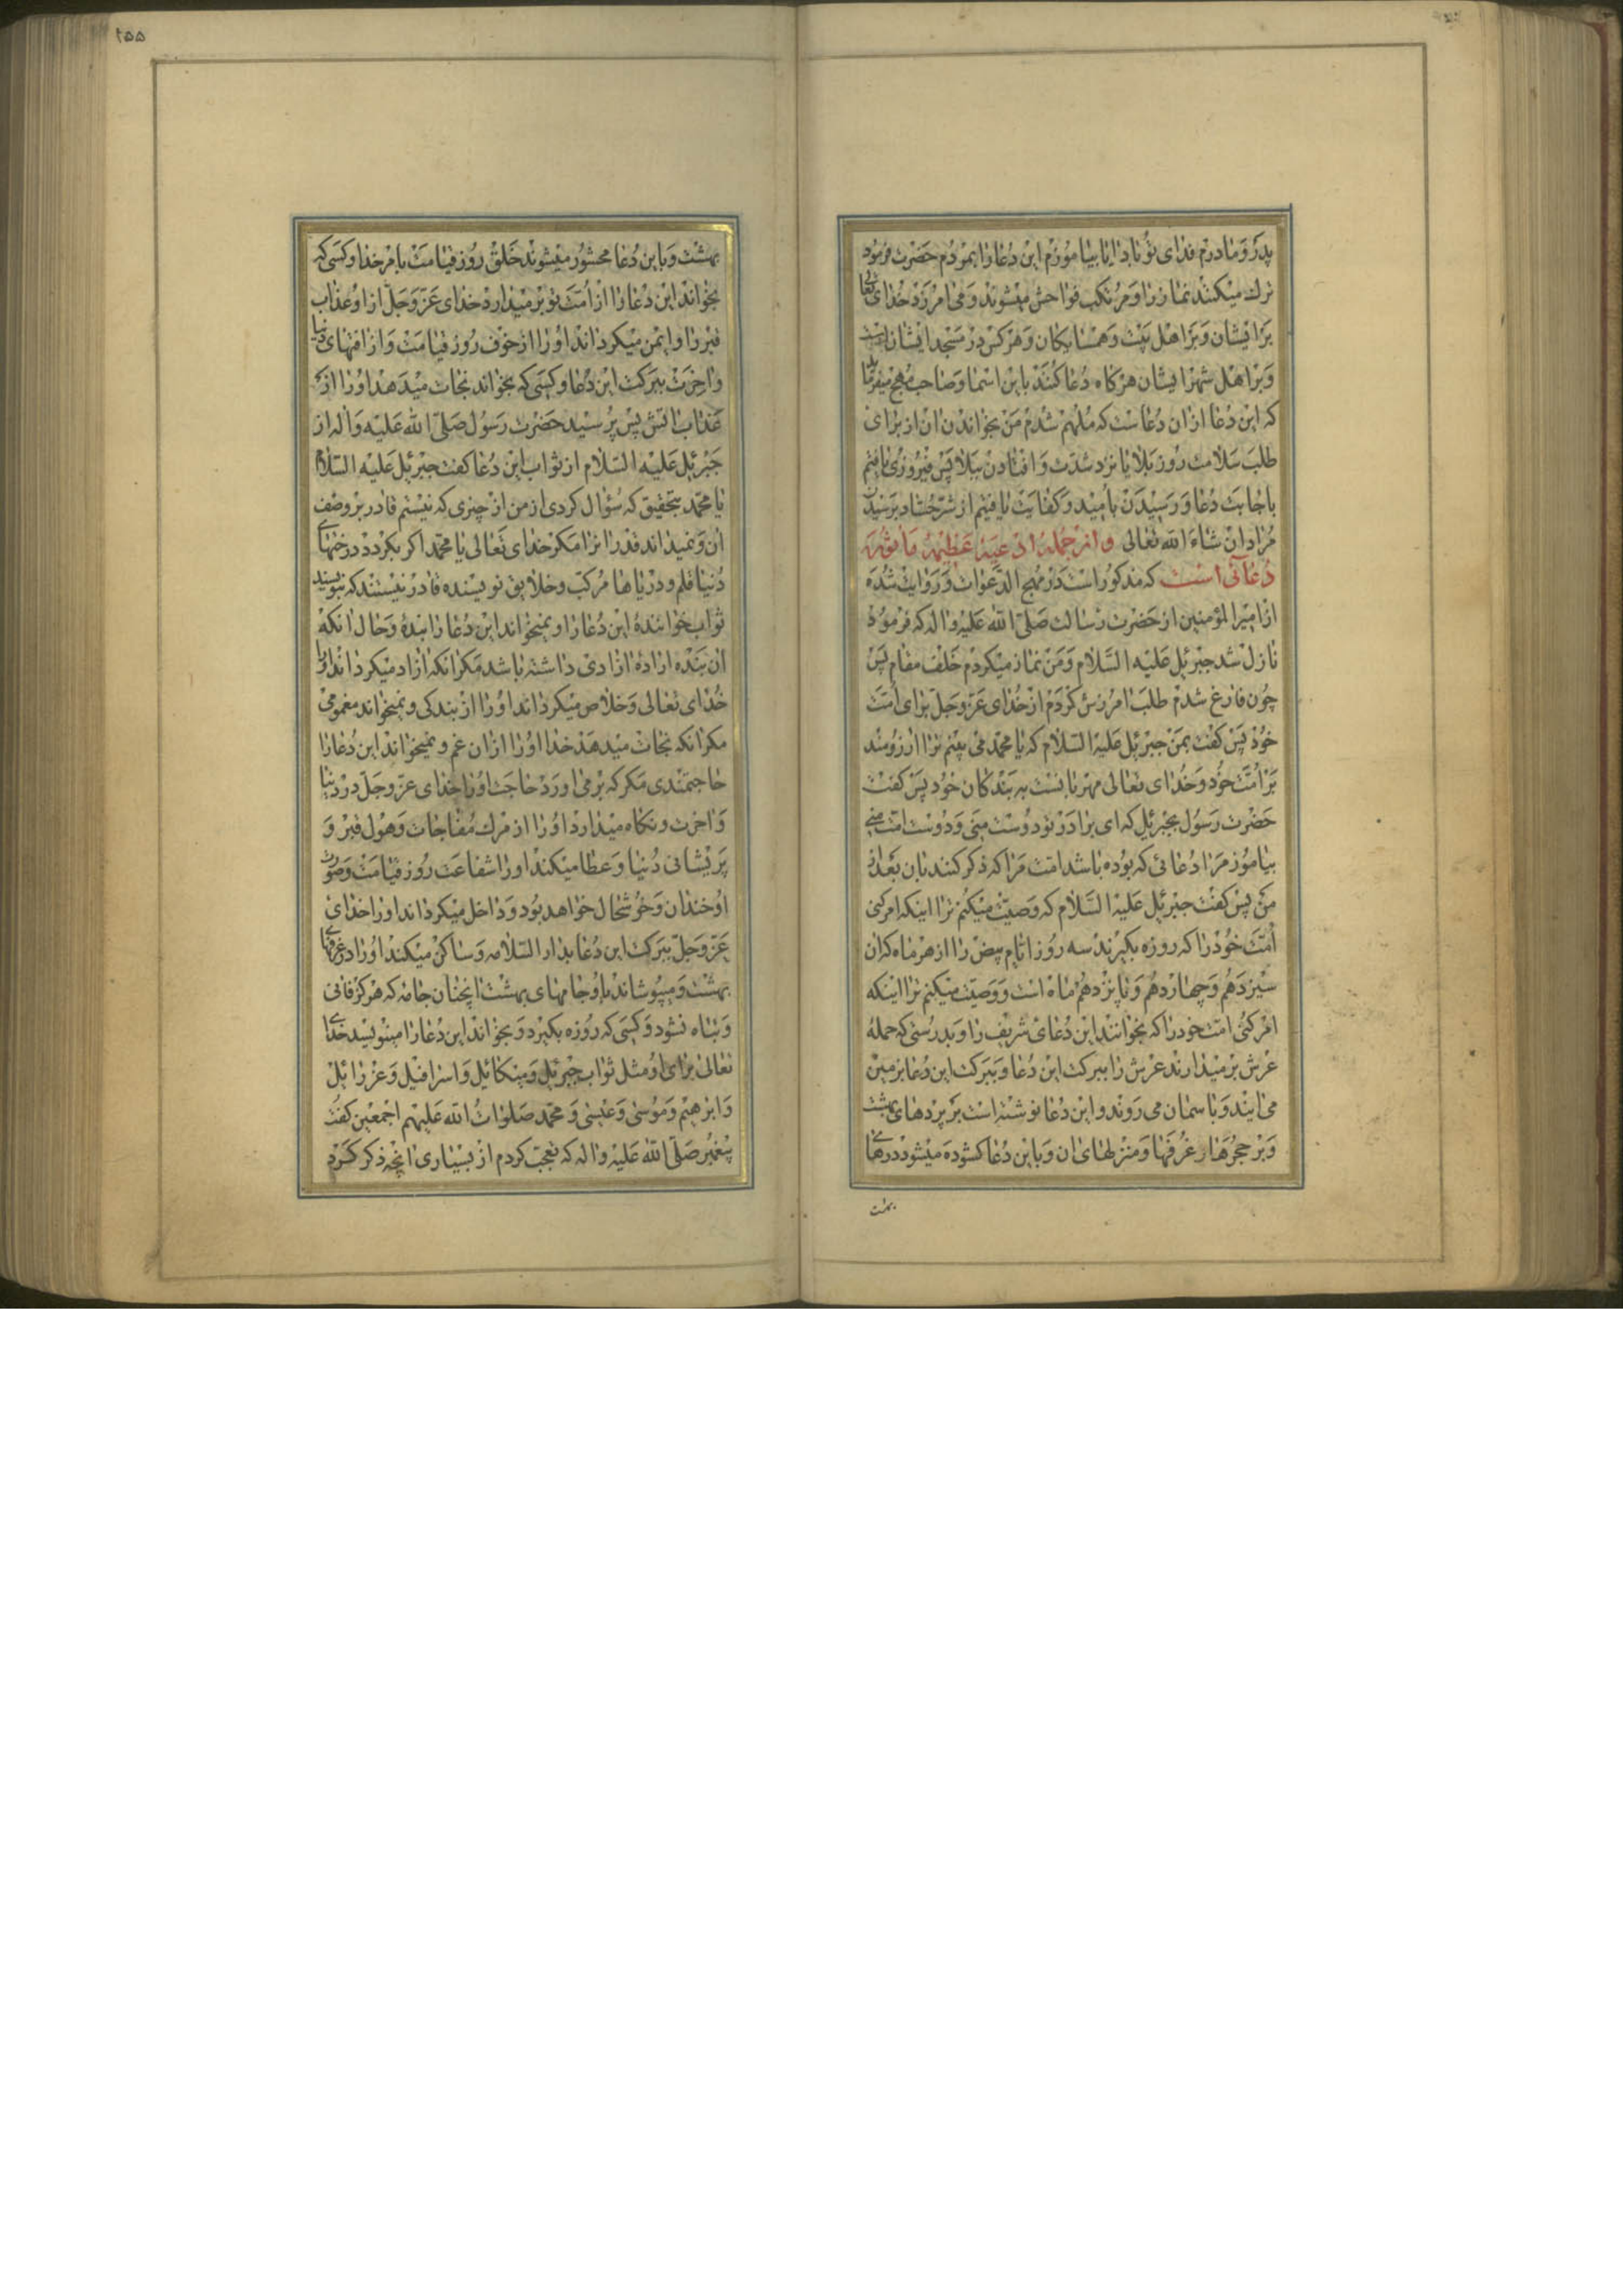 پدر و مادرم فدای تو باد ایا بیاموزم این دعا را بمردم حضرت فرمود
ترك میکنند نماز را و مرتکب فواحش میشوند و می امرزد خدای تعالی
بر ایشان و بر اهل بیت و همسایکان و هرکس در مسجد ایشان است
و بر اهل شهر ایشان هرکاه دعا کنند باین اسما و صاحب مهج میفرماید
که این دعا ازان دعاست که ملهم شدم من بخواندن ان از برای
طلب سلامت روز بلا یا نزد شدت و افتادن ببلا پس فیروزی یافتم
باجابت دعا و رسیدن بامید و کفایت یافتیم از شر حساد برسیدن
مراد ان شاء الله تعالی و از جمله ادعیه عظیمه ماثوره
دعائی است که مذکور است در مهج الدعوات و روایت شده
از امیر المؤمنین از حضرت رسالت صلی الله علیه واله که فرمود
نازل شد جبرئیل علیه السلام و من نماز میکردم خلف مقام پس
چون فارغ شدم طلب امرزش کردم از خدای عز وجل برای امت
خود پس کفت بمن جبرئیل علیه السلام که یا محمد می بینم ترا ارزومند
بر امت خود و خدای تعالی مهربانست به بندکان خود پس کفت
حضرت رسول بجبرئیل که ای برادر تو دوست منی و دوست امت منی
بیاموز مرا دعائی که بوده باشد امت مرا که ذکر کنند بان بعد از
من پس کفت جبرئیل علیه السلام که وصیت میکنم ترا اینکه امر کنی
امت خود را که روزه بکیرند سه روز ایام بیض را از هر ماه که ان
سیزدهم و چهاردهم و پانزدهم ماه است و وصیت میکنم ترا اینکه
امر کنی امت خود را که بخوانند این دعای شریف را و بدرستی که حمله
عرش برمیدارند عرش را ببرکت این دعا و ببرکت این دعا بزمین
می ایند و باسمان می روند و این دعا نوشته است بر پردهای بهشت
و بر حجرها و غرفها و منزلهای ان و باین دعا کشوده میشود درهای
بهشت
۲۵۵
بهشت و باین دعا محشور میشوند خلق روز قیامت بامر خدا و کسی که
بخواند این دعا را از امت تو برمیدارد خدای عز وجل از او عذاب
قبر را و ایمن میکرداند او را از خوف روز قیامت و از افتهای دنیا
و اخرت ببرکت این دعا و کسی که بخواند نجات میدهد او را از
عذاب اتش پس پرسید حضرت رسول صلی الله علیه و اله از
جبرئیل علیه السلام از ثواب این دعا کفت جبرئیل علیه السلام
یا محمد بتحقیق که سؤال کردی از من از چیزی که نیستم قادر بر وصف
ان و نمیداند قدر انرا مکر خدای تعالی یا محمد اکر بکردد درختهای
دنیا قلم و دریاها مرکب و خلایق نویسنده قادر نیستند که بنویسند
ثواب خواننده این دعا را و نمیخواند این دعا را بنده و حال انکه
ان بنده اراده ازادی داشته باشد مکر انکه ازاد میکرداند او را
خدای تعالی و خلاص میکرداند او را از بندکی و نمیخواند مغمومی
مکر انکه نجات میدهد خدا او را ازان غم و نمیخواند این دعا را
حاجتمندی مکر که برمی اورد حاجت او را خدای عز وجل در دنیا
و اخرت و نکاه میدارد او را از مرك مفاجات و هول قبر و
پریشانی دنیا و عطا میکند او را شفاعت روز قیامت و صورت
او خندان و خوشحال خواهد بود و داخل میکرداند او را خدای
عز وجل ببرکت این دعا بدار السلامه و ساکن میکند او را در غرفهای
بهشت و میپوشاند باو جامهای بهشت انچنان جامه که هرکز فانی
و تباه نشود و کسی که روزه بکیرد و بخواند این دعا را مینویسد خدای
تعالی برای او مثل ثواب جبرئیل و میکائیل و اسرافیل و عزرائیل
و ابرهیم و موسی و عیسی و محمد صلوات الله علیهم اجمعین کفت
پیغمبر صلی الله علیه واله که تعجب کردم از بسیاری انچه ذکر کردم